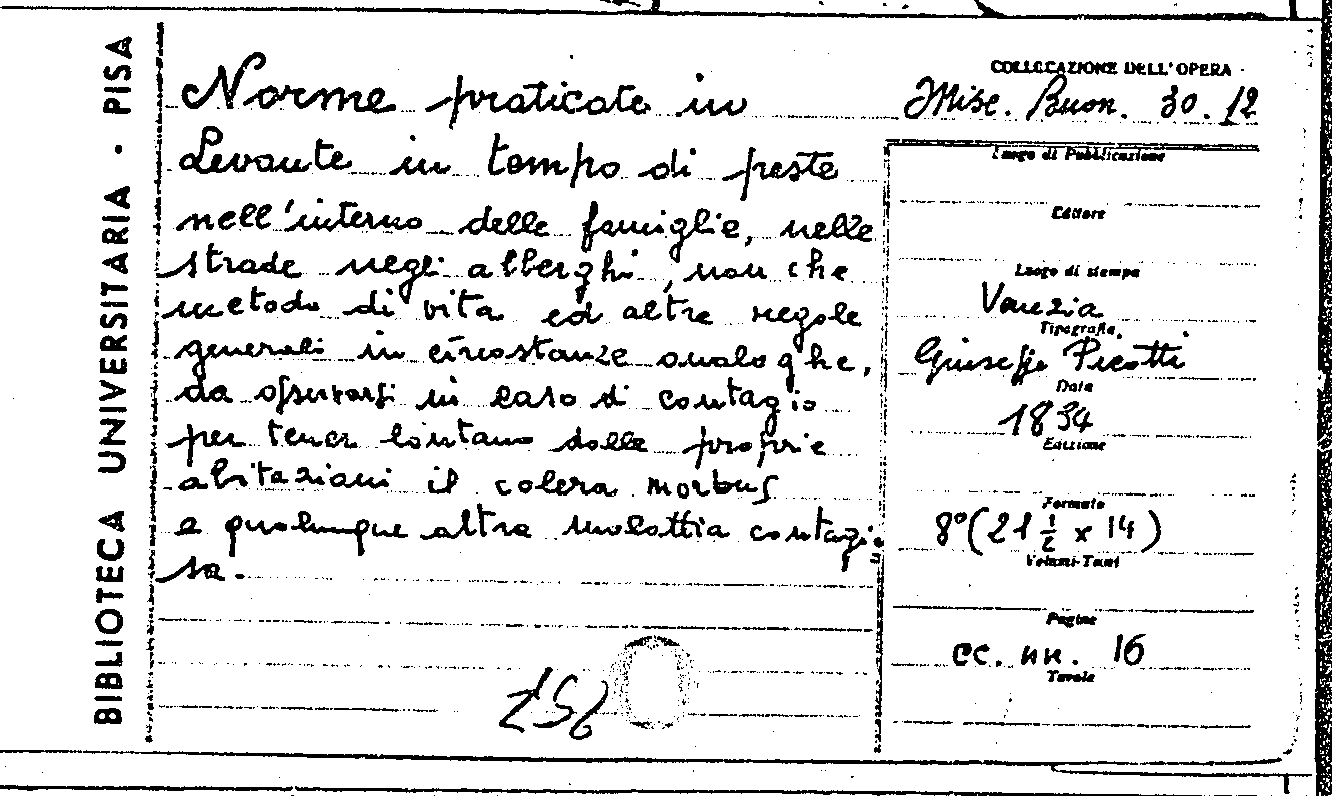 BIBLIOTECA UNIVERSITARIA · PISA
Norme praticate in
Levante in tempo di peste
nell'interno delle famiglie, nelle
strade negli alberghi, non che
metodo di vita ed altre regole
generali in circostanze analoghe,
da osservarsi in caso di contagio
per tener lontano dalle proprie
abitazioni il colera morbus
e qualunque altra malattia contagio
sa.
COLLOCAZIONE DELL'OPERA
Misc. Buon. 30.12
Luogo di Pubblicazione
Editore
Luogo di stampa
Venezia
Tipografia
Giuseppe Picotti
Data
1834
Edizione
Formato
8º (21 1/2 x 14)
Volumi-Tomi
Pagine
cc. nn. 16
Tavole